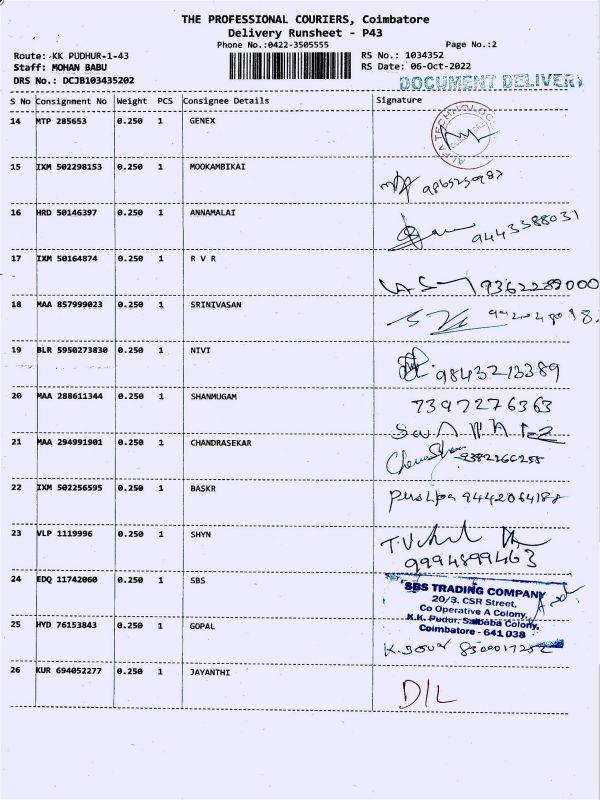 THE PROFESSIONAL COURIERS, Coimbatore
Delivery Runsheet - P43
Phone No.:0422-3505555
Page No.:2
Route: KK PUDHUR-1-43
RS No.: 1034352
Staff: MOHAN BABU
RS Date: 06-Oct-2022
DRS No.: DCJB103435202
DOCUMENT DELIVERY
S No Consignment No Weight PCS Consignee Details Signature
14 MTP 285653 0.250 1 GENEX
15 IXM 502298153 0.250 1 MOOKAMBIKAI
16 HRD 50146397 0.250 1 ANNAMALAI 9443388031
17 IXM 50164874 0.250 1 R V R
9362289000
18 MAA 857999023 0.250 1 SRINIVASAN
19 BLR 5950273830 0.250 1 NIVI
9843213389
20 MAA 288611344 0.250 1 SHANMUGAM 7397276363
21 MAA 294991901 0.250 1 CHANDRASEKAR
9382266255
22 IXM 502256595 0.250 1 BASKR
9442064188
23 VLP 1119996 0.250 1 SHYN
9994899463
24 EDQ 11742060 0.250 1 SBS
SBS TRADING COMPANY
20/3, CSR Street,
Co Operative A Colony,
K.K. Pudur, Saibaba Colony,
Coimbatore - 641 038
25 HYD 76153843 0.250 1 GOPAL
8300017252
26 KUR 694052277 0.250 1 JAYANTHI
D/L